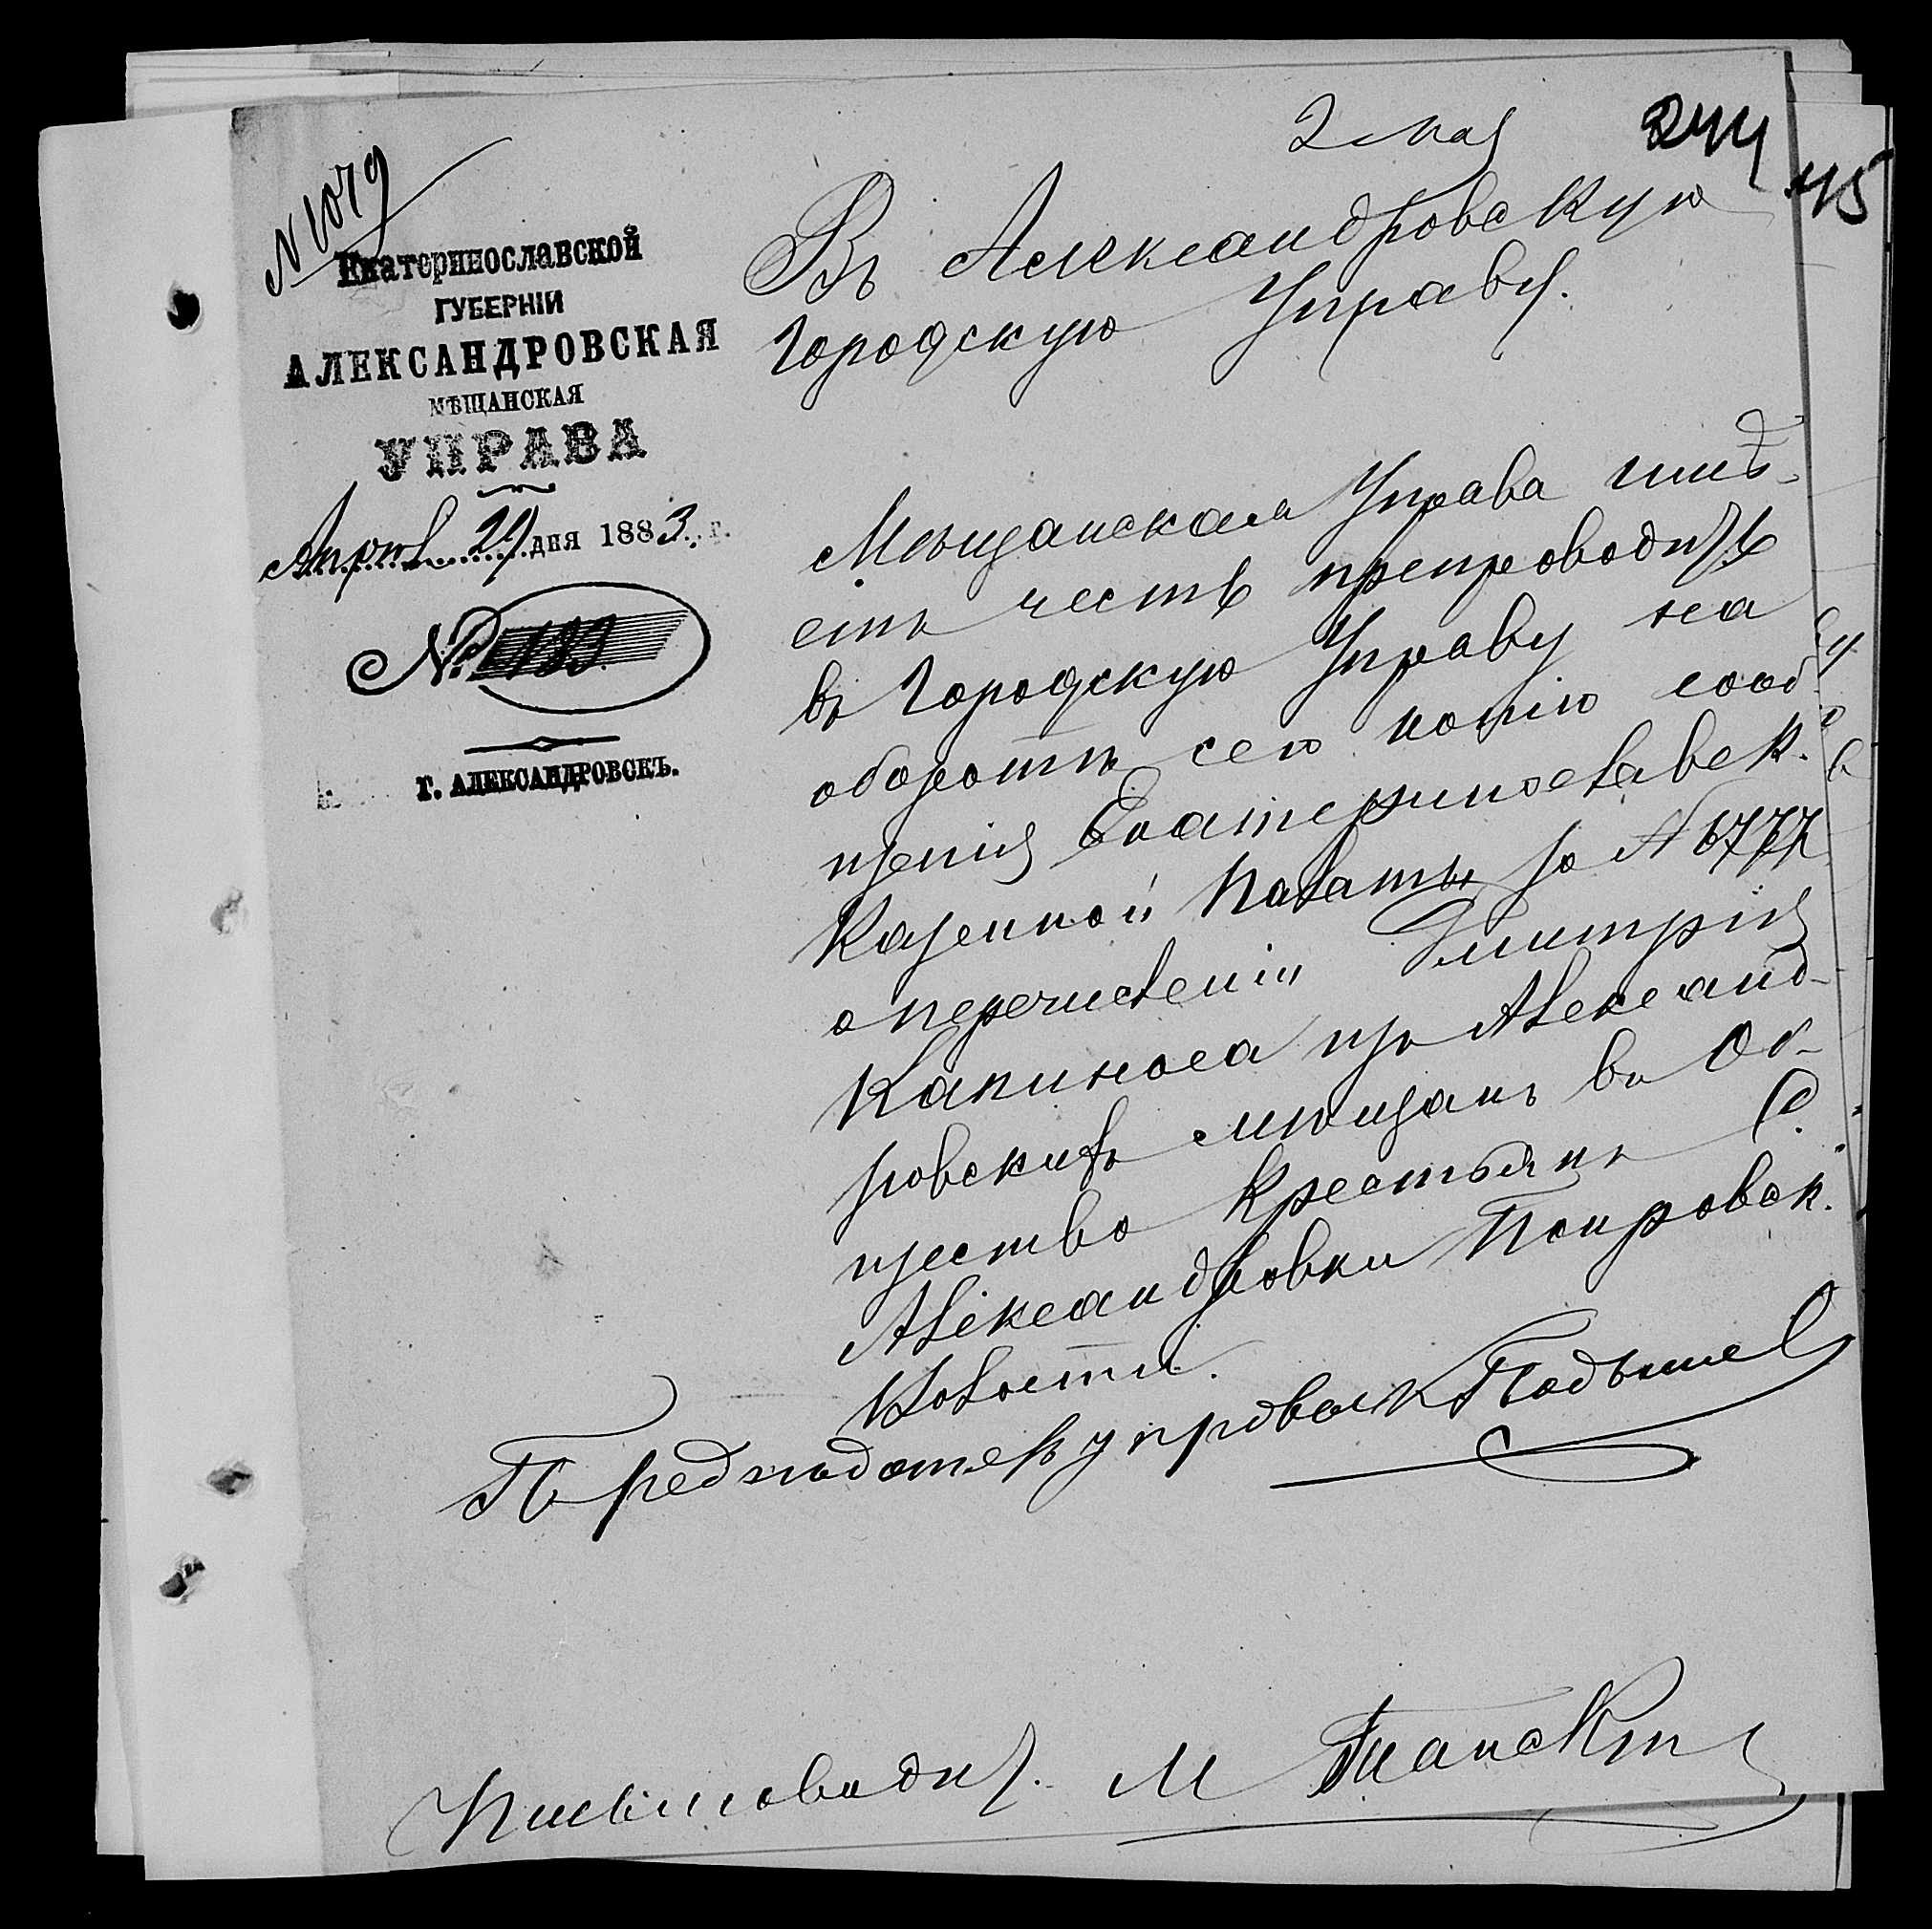 2 мая
244
45
N 1079
Екатеринославской
ГУБЕРНІИ
АЛЕКСАНДРОВСКАЯ
МѢЩАНСКАЯ
УПРАВА
Апрѣл 29 дня 1883 г.
№ 183
Г. АЛЕКСАНДРОВСКЪ.
Въ Александровскую
Городскую Управу.
Мѣщанская Управа имѣ-
етъ честь препроводить
въ Городскую Управу на
оборотѣ сего копію сооб-
щенія Екатеринославск.
Казенной Палаты за N 6777
о перечисленіи Дмитрія
Капиноса изъ Александ-
ровскихъ мѣщанъ въ Об-
щество Крестьянъ С.
Александровки Покровск.
Волости.
Предсѣдатель управы
Письмоводит. М